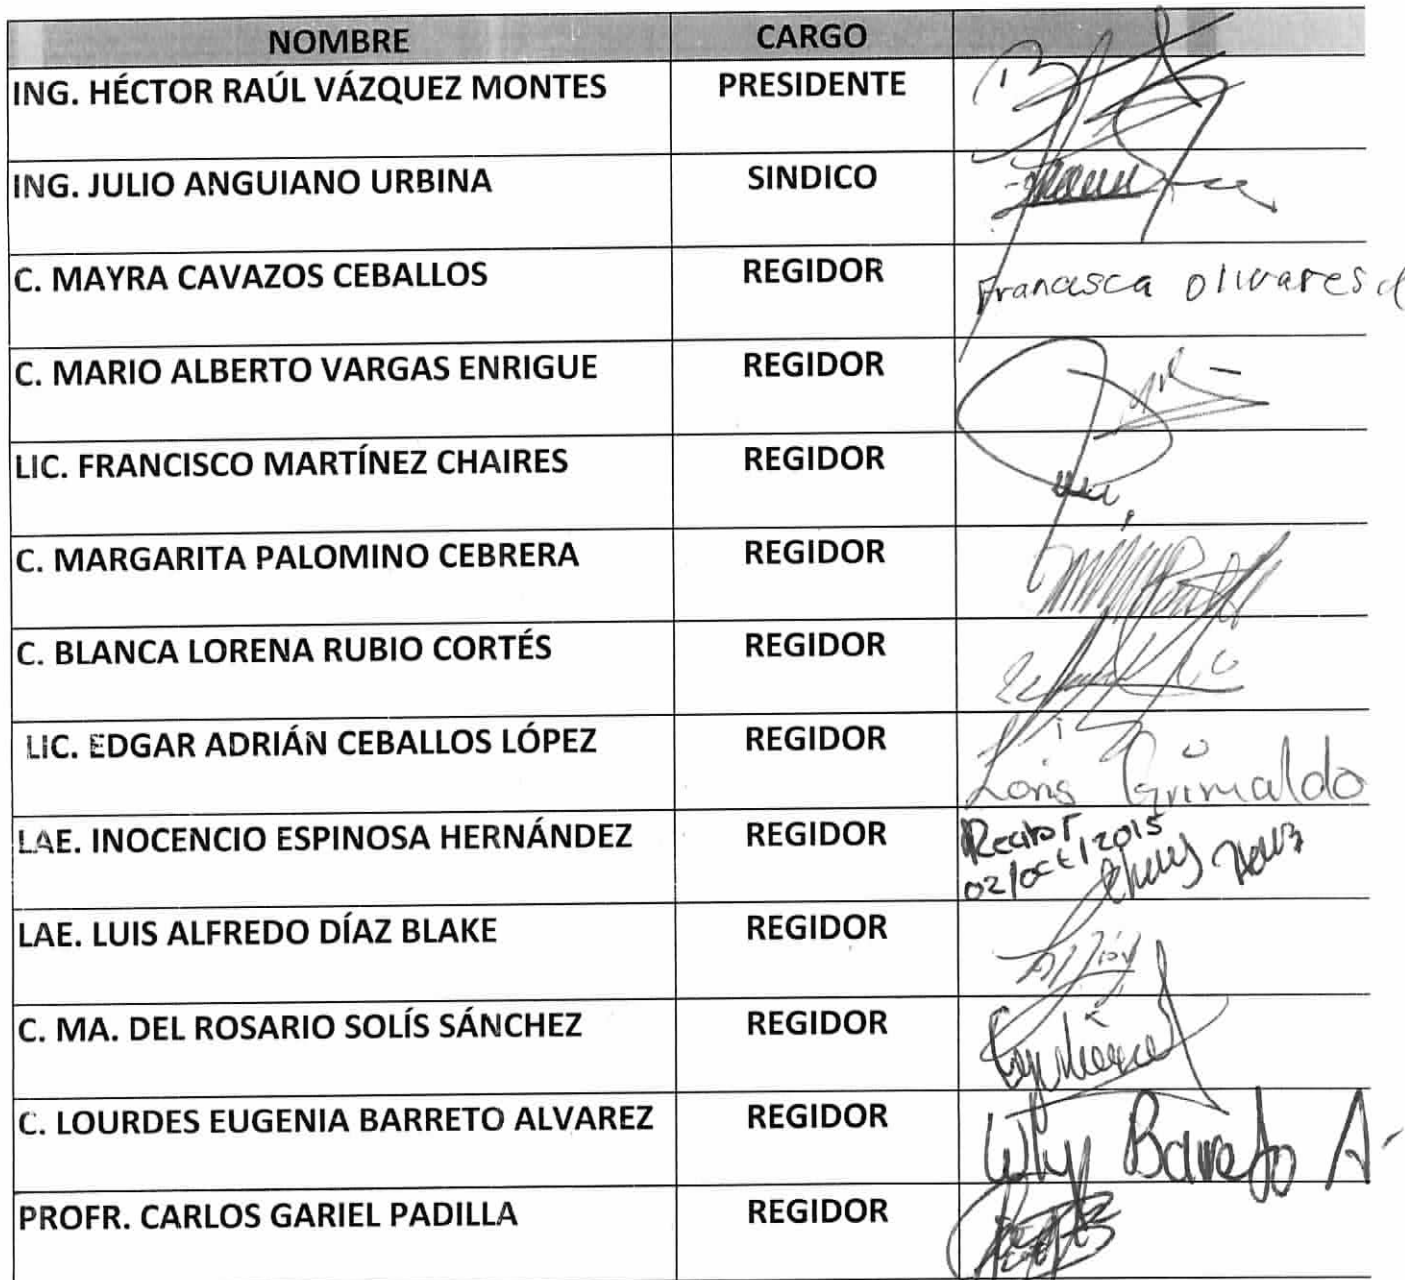 NOMBRE CARGO
ING. HÉCTOR RAÚL VÁZQUEZ MONTES PRESIDENTE
ING. JULIO ANGUIANO URBINA SINDICO
C. MAYRA CAVAZOS CEBALLOS REGIDOR Francisca Olivares
C. MARIO ALBERTO VARGAS ENRIGUE REGIDOR
LIC. FRANCISCO MARTÍNEZ CHAIRES REGIDOR
C. MARGARITA PALOMINO CEBRERA REGIDOR
C. BLANCA LORENA RUBIO CORTÉS REGIDOR
LIC. EDGAR ADRIÁN CEBALLOS LÓPEZ REGIDOR Grimaldo
LAE. INOCENCIO ESPINOSA HERNÁNDEZ REGIDOR
02/oct/2015
LAE. LUIS ALFREDO DÍAZ BLAKE REGIDOR
C. MA. DEL ROSARIO SOLÍS SÁNCHEZ REGIDOR
C. LOURDES EUGENIA BARRETO ALVAREZ REGIDOR Barreto A.
PROFR. CARLOS GARIEL PADILLA REGIDOR